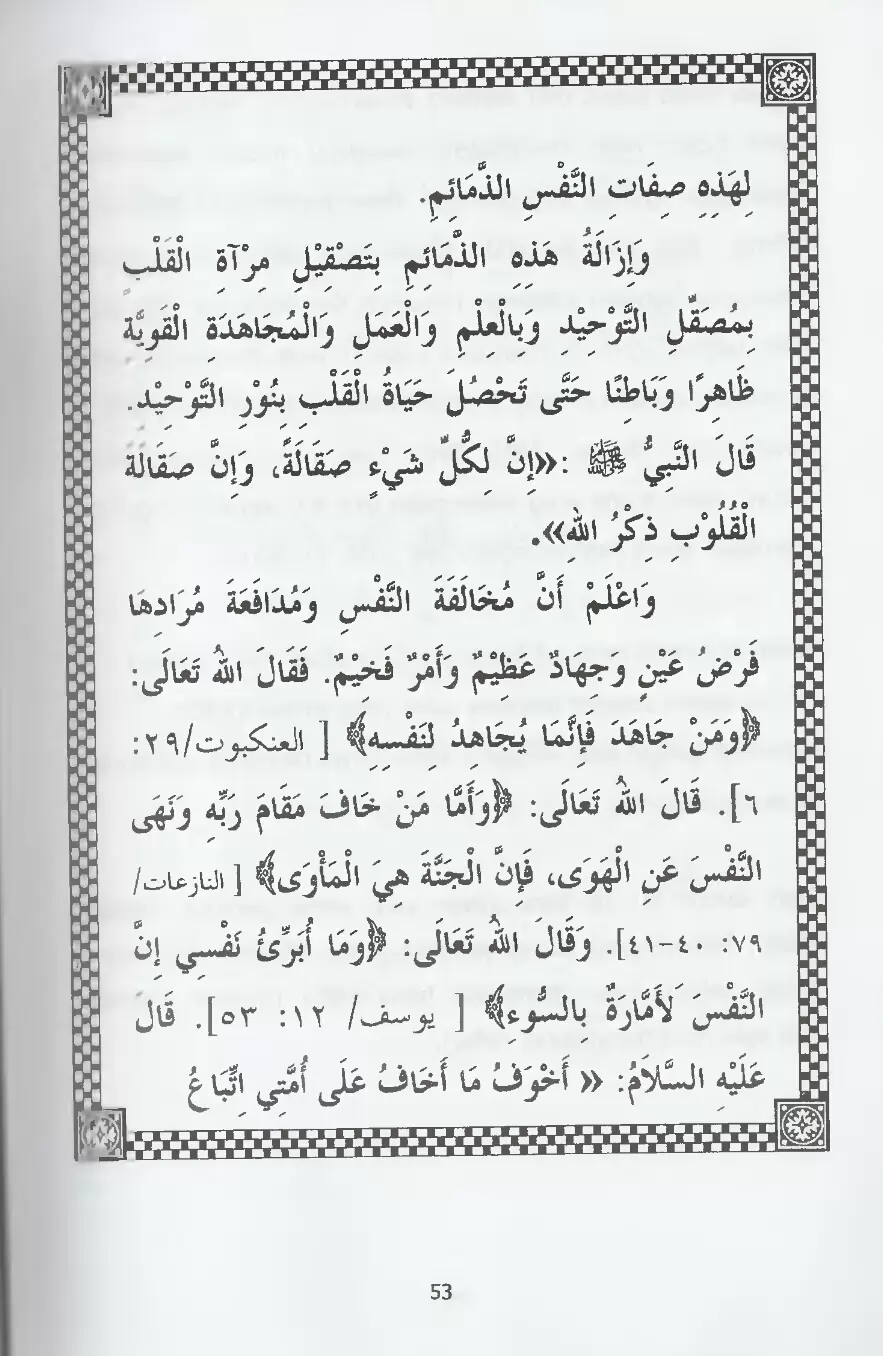 لِهَذِهِ صِفَاتِ النَّفْسِ الذَّمَائِمِ.
وَإِزَالَةُ هَذِهِ الذَّمَائِمِ بِتَصْقِيْلِ مِرْآةِ الْقَلْبِ
بِمُصَقِّلِ التَّوْحِيْدِ وَبِالْعِلْمِ وَالْعَمَلِ وَالْمُجَاهَدَةِ الْقَوِيَّةِ
ظَاهِرًا وَبَاطِنًا حَتَّى تَحْصُلَ حَيَاةُ الْقَلْبِ بِنُوْرِ التَّوْحِيْدِ.
قَالَ النَّبِيُّ ﷺ :«إِنَّ لِكُلِّ شَيْءٍ صِقَالَةً، وَإِنَّ صِقَالَةَ
الْقُلُوْبِ ذِكْرُ اللهِ».
وَاعْلَمْ أَنَّ مُخَالَفَةَ النَّفْسِ وَمُدَافَعَةَ مُرَادِهَا
فَرْضُ عَيْنٍ وَجِهَادٌ عَظِيْمٌ وَأَمْرٌ فَخِيْمٌ. فَقَالَ اللهُ تَعَالَى:
﴿وَمَنْ جَاهَدَ فَإِنَّمَا يُجَاهِدُ لِنَفْسِهِ﴾ [ العنكبوت/٢٩:
٦]. قَالَ اللهُ تَعَالَى: ﴿وَأَمَّا مَنْ خَافَ مَقَامَ رَبِّهِ وَنَهَى
النَّفْسَ عَنِ الْهَوَى، فَإِنَّ الْجَنَّةَ هِيَ الْمَأْوَى﴾ [ النازعات/
٧٩: ٤٠-٤١]. وَقَالَ اللهُ تَعَالَى: ﴿وَمَا أُبَرِّئُ نَفْسِي إِنَّ
النَّفْسَ لَأَمَّارَةٌ بِالسُّوْءِ﴾ [ يوسف/ ١٢: ٥٣]. قَالَ
عَلَيْهِ السَّلَامُ: « أَخْوَفُ مَا أَخَافُ عَلَى أُمَّتِي اتِّبَاعُ
53